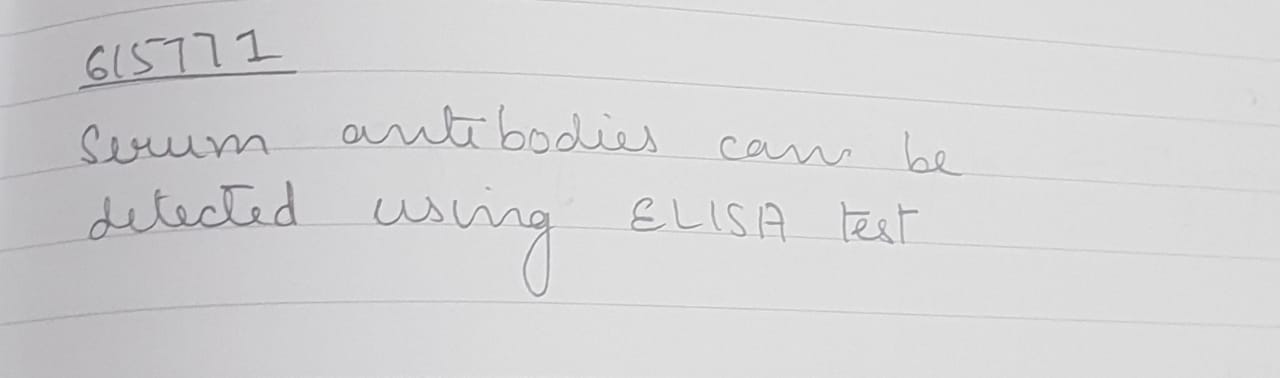 615771
Serum antibodies can be
detected using ELISA test